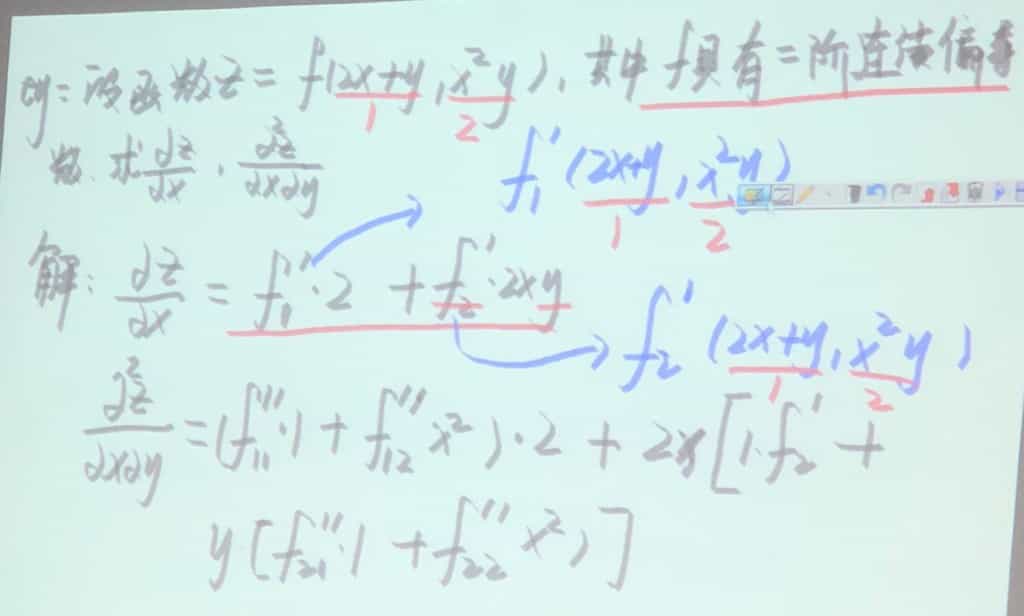 eg: 设函数z = f(2x+y, x²y), 其中 f具有二阶连续偏导
1 2
数. 求∂z/∂x, ∂²z/∂x∂y
f₁′(2x+y, x²y)
1 2
解: ∂z/∂x = f₁′·2 + f₂′·2xy
f₂′(2x+y, x²y)
1 2
∂²z/∂x∂y = (f₁₁″·1 + f₁₂″x²)·2 + 2x[1·f₂′ +
y[f₂₁″·1 + f₂₂″x²)]